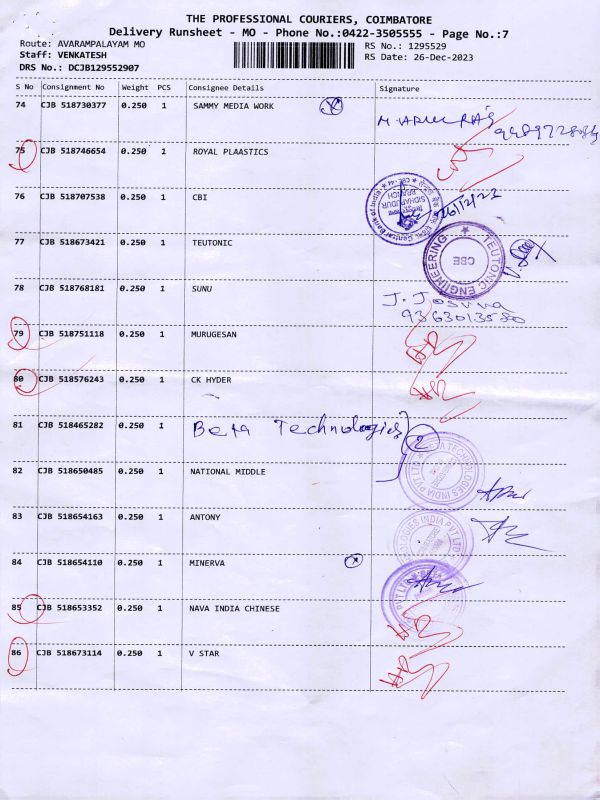 THE PROFESSIONAL COURIERS, COIMBATORE
Delivery Runsheet - MO - Phone No.:0422-3505555 - Page No.:7
Route: AVARAMPALAYAM MO
RS No.: 1295529
Staff: VENKATESH
RS Date: 26-Dec-2023
DRS No.: DCJB129552907
S No Consignment No Weight PCS Consignee Details Signature
74 CJB 518730377 0.250 1 SAMMY MEDIA WORK
75 CJB 518746654 0.250 1 ROYAL PLAASTICS
76 CJB 518707538 0.250 1 CBI
Central Bank of India
SIDHAPUDUR
BRANCH
77 CJB 518673421 0.250 1 TEUTONIC
TEUTONIC ENGINEERING
CBE
78 CJB 518768181 0.250 1 SUNU
J. Joshna
9363013580
79 CJB 518751118 0.250 1 MURUGESAN
80 CJB 518576243 0.250 1 CK HYDER
81 CJB 518465282 0.250 1 Beta Technologies 2
82 CJB 518650485 0.250 1 NATIONAL MIDDLE
83 CJB 518654163 0.250 1 ANTONY
84 CJB 518654110 0.250 1 MINERVA
85 CJB 518653352 0.250 1 NAVA INDIA CHINESE
86 CJB 518673114 0.250 1 V STAR